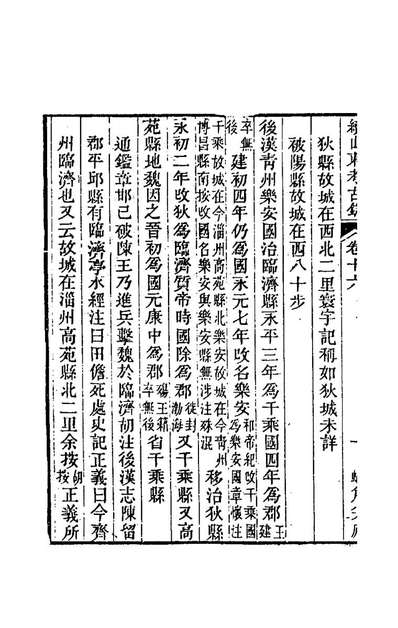 續山東考古錄 卷十六
狄縣故城在西北二里寰宇記稱如狄城未詳
被陽縣故城在西八十步
後漢青州樂安國治臨濟縣永平三年為千乘國四年為郡王建
卒無後建初四年仍為國永元七年改名樂安和帝紀改千乘國為樂安國章懷注
千乘故城在今淄州高苑縣北樂安故城在今青州
博昌縣南按改國名樂安與樂安縣無涉注殊混移治狄縣
永初二年改狄為臨濟質帝時國除為郡徙封勃海又千乘縣又高
苑縣地魏因之晉初為國元康中為郡碭王籍卒無後省千乘縣
通鑑章邯已破陳王乃進兵擊魏於臨濟胡注後漢志陳留
郡平邱縣有臨濟亭水經注曰田儋死處史記正義曰今齊
州臨濟也又云故城在淄州高苑縣北二里余按胡按正義所